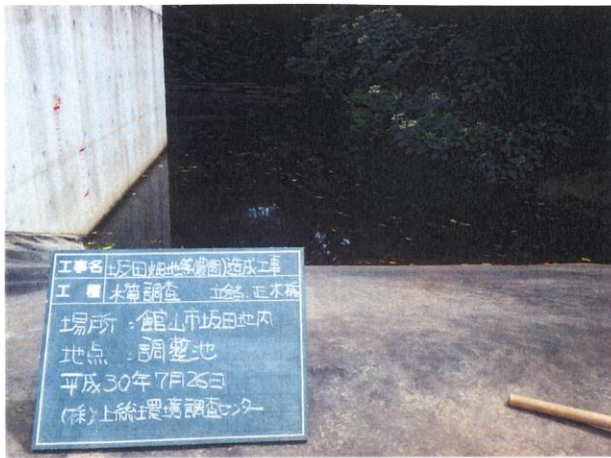 工事名 坂田畑地等(農園)造成工事
工種 水質調査 立会者 正木
場所:館山市坂田地内
地点:調整池
平成30年7月26日
(株)上総環境調査センター